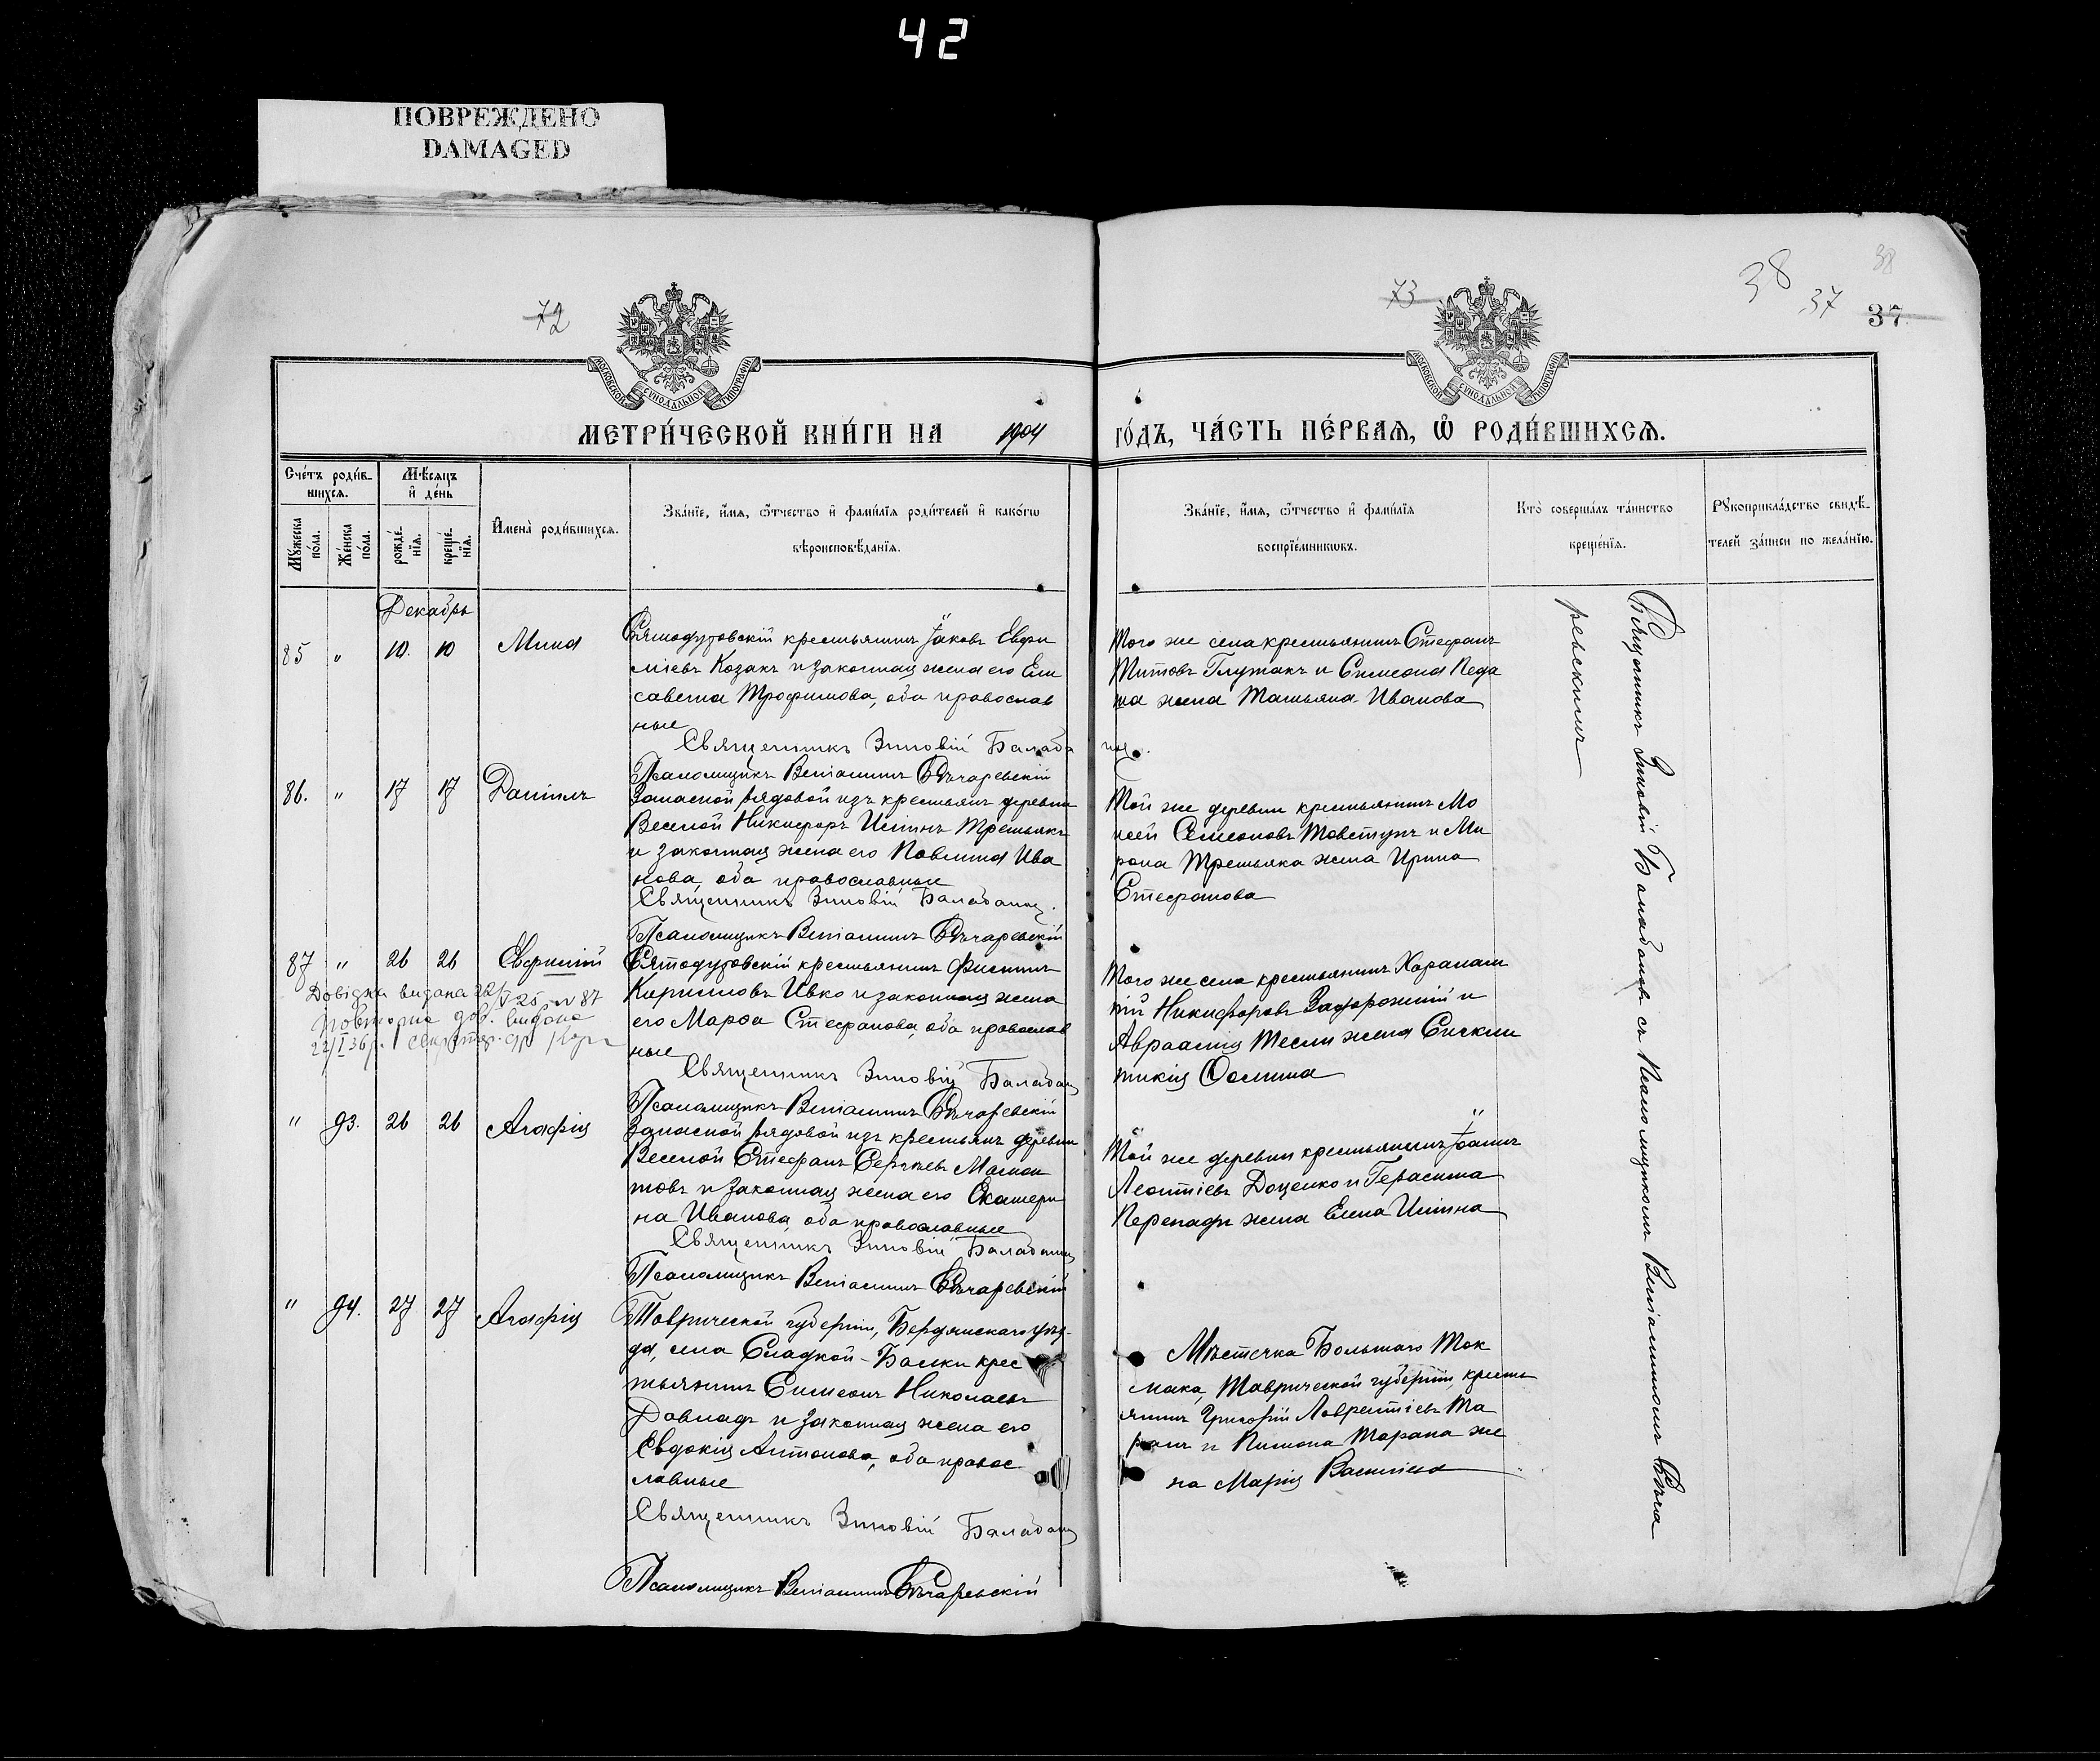 42
ПОВРЕЖДЕНО
DAMAGED
72
73
38
38
37
37
МОСКОВСКОЙ СѴНОДАЛЬНОЙ ТИПОГРАФІИ
МОСКОВСКОЙ СѴНОДАЛЬНОЙ ТИПОГРАФІИ
МЕТРИ́ЧЕСКОЙ КНИ́ГИ НА 1904 ГО́ДЪ, ЧА́СТЬ ПЕ́РВАѦ, Ѡ҆ РОДИ́ВШИХСѦ.
Сче́тъ роди́в-
шихсѧ.
Мꙋ́жеска по́ла.
Же́нска по́ла.
Мѣ́сѧцъ
и҆ де́нь
рожде́-
нїѧ.
креще́-
нїѧ.
И҆мена̀ роди́вшихсѧ.
Зва́нїе, и҆́мѧ, ѻ҆́тчество и҆ фами́лїѧ роди́телей и҆ како́гѡ
вѣроисповѣ́данїѧ.
Зва́нїе, и҆́мѧ, ѻ҆́тчество и҆ фами́лїѧ
воспрїе́мникѡвъ.
Кто̀ соверша́лъ та́инство
креще́нїѧ.
Рꙋкоприкла́дство свидѣ́-
телей за́писи по жела́нїю.
Декабрь
85 " 10. 10 Мина
Святодуховскій крестьянинъ Іаковъ Евѳи
міевъ Козакъ и законная жена его Ели
савета Трофимова, оба православ
ные
Священникъ Зиновій Балабанъ.
Псаломщикъ Веніаминъ Бѣчаревскій
Того же села крестьянинъ Стефанъ
Титовъ Глутакъ и Симеона Педа
ша жена Татьяна Иванова
86. " 17 17 Даніилъ
Запасной рядовой изъ крестьянъ деревни
Веселой Никифоръ Исаинъ Третьякъ
и законная жена его Павлина Ива
нова, оба православные
Священникъ Зиновій Балабанъ.
Псаломщикъ Веніаминъ Бѣчаревскій
Той же деревни крестьянинъ Мо
исей Семеоновъ Товстунъ и Ми
рона Третьяка жена Ирина
Стефанова
87 " 26 26 Евфимій
Довідка видана 22/V 25 N 87
повторна дов. видана
22/I 36 р.
Святодуховскій крестьянинъ Филиппъ
Кирилловъ Ивко и законная жена
его Марѳа Стефанова, оба православ
ные
Священникъ Зиновій Балабанъ
Псаломщикъ Веніаминъ Бѣчаревскій
Того же села крестьянинъ Харалам
пій Никифоровъ Задорожній и
Авраамія Тесли жена Синкли
тикія
" 93. 26 26 Агафія
Запасной рядовой изъ крестьянъ деревни
Веселой Стефанъ Сергѣевъ Мамон
товъ и законная жена его Екатери
на Иванова, оба православные
Священникъ Зиновій Балабанъ
Псаломщикъ Веніаминъ Бѣчаревскій
Той же деревни крестьянинъ Іоаннъ
Леонтіевъ Доценко и Герасима
жена Елена Исаина
" 94. 27 27 Агафія
Таврической губерніи, Бердянскаго уѣз-
да, села Сладкой-Балки крес
тьянинъ Симеонъ Николаевъ
и законная жена его
Евдокія Антонова, оба правос
лавные
Священникъ Зиновій Балабанъ
Псаломщикъ Веніаминъ Бѣчаревскій
Мѣстечка Большаго Ток
мака, Таврической губерніи, кресть
янинъ Григорій Лаврентіевъ Та
ранъ и Пимона Тарана же
на Марія Васильева
Священникъ Зиновій Балабановъ съ Псаломщикомъ Веніаминомъ Бѣча
ревскимъ